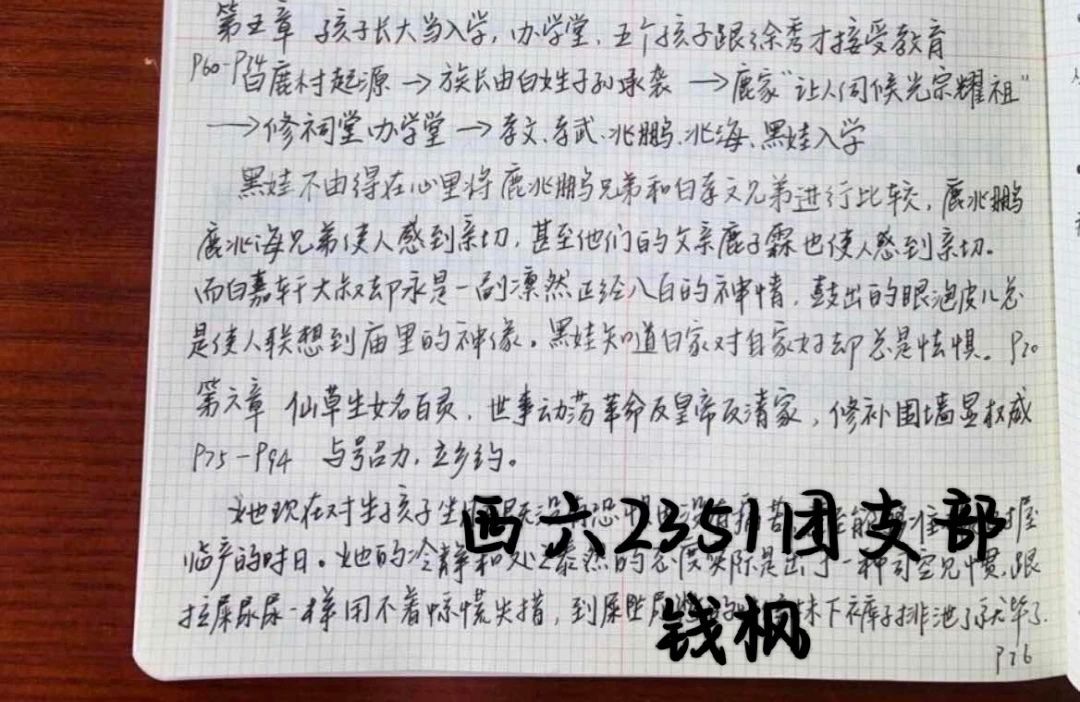 第五章 孩子长大当入学,办学堂,五个孩子跟徐秀才接受教育
P60-P 白鹿村起源→族长由白姓子孙承袭→鹿家“让人伺候光宗耀祖”
→修祠堂办学堂→孝文、孝武、兆鹏、兆海、黑娃入学
黑娃不由得在心里将鹿兆鹏兄弟和白孝文兄弟进行比较,鹿兆鹏
鹿兆海兄弟使人感到亲切,甚至他们的父亲鹿子霖也使人感到亲切。
而白嘉轩大叔却永是一副凛然正经八百的神情,鼓出的眼泡皮儿总
是使人联想到庙里的神像。黑娃知道白家对自家好却总是怯惧。P70
第六章 仙草生女名百灵,世事动荡革命反皇帝反清家,修补围墙显权威
P75-P94 与号召力,立乡约。
她现在对生孩子坐
临产的时日。她的冷静和处之泰然的态度实际是出于一种司空见惯,跟
拉屎尿尿一样用不着惊慌失措,到屎坠尿 下裤子排泄了就毕了.
P76
西六2351团支部
钱枫